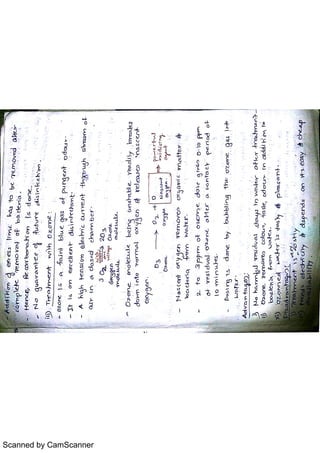 - Addition of excess lime has to be removed after
complete removal of bacteria.
- Hence recarbonation is done.
- No guarantee of future disinfection.
iii) Treatment with ozone:
- ozone is a faint blue gas of pungent odour.
- It is an excellent disinfectant.
- A high tension electric current through stream of
air in a closed chamber.
3 O2 → 2O3
oxygen
molecule
ozone
molecule
- Ozone molecule being unstable readily breaks
down into normal oxygen & releases 'nascent
oxygen.
O3 → O2 + O →
Ozone oxygen nascent
oxygen
powerful
oxidizing
agent
- Nascent oxygen removes organic matter &
bacteria from water.
- 2 to 3 ppm of ozone dose gives 0.10 ppm
of residual ozone after a contact period of
10 minutes.
- Dosing is done by bubbling the ozone gas into
water.
Advantages:
i) No harmful residue stays in water after treatment.
ii) Ozone removes colour, taste, odour in addition to
bacteria from water.
iii) Ozonated water is tasty & pleasant.
Disadvantages:
Treatment is
needs electricity & depends on its easy & cheap
availability.
Scanned by CamScanner